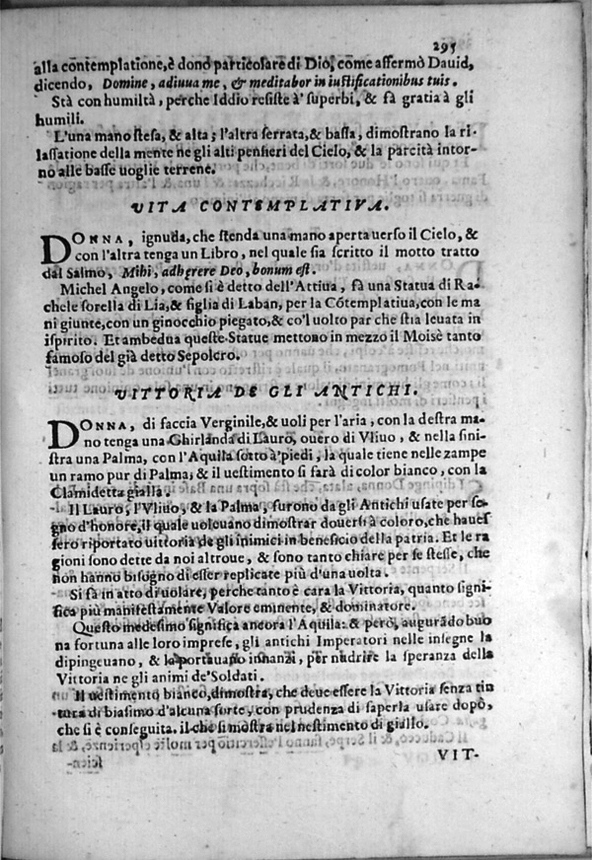 295
alla contemplatione, è dono particolare di Dio, come affermò Dauid,
dicendo, Domine, adiuua me, & meditabor in iustificationibus tuis.
Stà con humiltà, perche Iddio resiste à' superbi, & fà gratia à gli
humili.
L'una mano stesa, & alta; l'altra serrata, & bassa, dimostrano la ri-
lassatione della mente ne gli alti pensieri del Cielo, & la parcità intor-
no alle basse uoglie terrene.
VITA CONTEMPLATIVA.
DONNA, ignuda, che stenda una mano aperta uerso il Cielo, &
con l'altra tenga un Libro, nel quale sia scritto il motto tratto
dal Salmo, Mihi, adherere Deo, bonum est.
Michel Angelo, come si è detto dell'Attiua, fà una Statua di Ra-
chele sorella di Lia, & figlia di Laban, per la Cõtemplatiua, con le ma
ni giunte, con un ginocchio piegato, & co'l uolto par che stia leuata in
ispirito. Et ambedua queste Statue mettono in mezzo il Moisè tanto
famoso del già detto Sepolcro.
VITTORIA DE GLI ANTICHI.
DONNA, di faccia Verginile, & uoli per l'aria, con la destra ma-
no tenga una Ghirlanda di Lauro, ouero di Vliuo, & nella sini-
stra una Palma, con l'Aquila sotto à' piedi, la quale tiene nelle zampe
un ramo pur di Palma, & il uestimento si farà di color bianco, con la
Clamidetta gialla.
Il Lauro, l'Vliuo, & la Palma, furono da gli Antichi usate per se-
gno d'honore, il quale uoleuano dimostrar douersi à coloro, che haues
sero riportato uittoria de gli inimici in beneficio della patria. Et le ra
gioni sono dette da noi altroue, & sono tanto chiare per se stesse, che
non hanno bisogno di esser replicate più d'una uolta.
Si fà in atto di uolare, perche tanto è cara la Vittoria, quanto signi-
fica più manifestamente Valore eminente, & dominatore.
Questo medesimo significa ancora l'Aquila: & però, augurãdo buo
na fortuna alle loro imprese, gli antichi Imperatori nelle insegne la
dipingeuano, & la portauano innanzi, per nudrire la speranza della
Vittoria ne gli animi de' Soldati.
Il uestimento bianco, dimostra, che deue essere la Vittoria senza tin
tura di biasimo d'alcuna sorte, con prudenza di saperla usare dopò,
che si è conseguita. il che si mostra nel uestimento di giallo.
VIT-